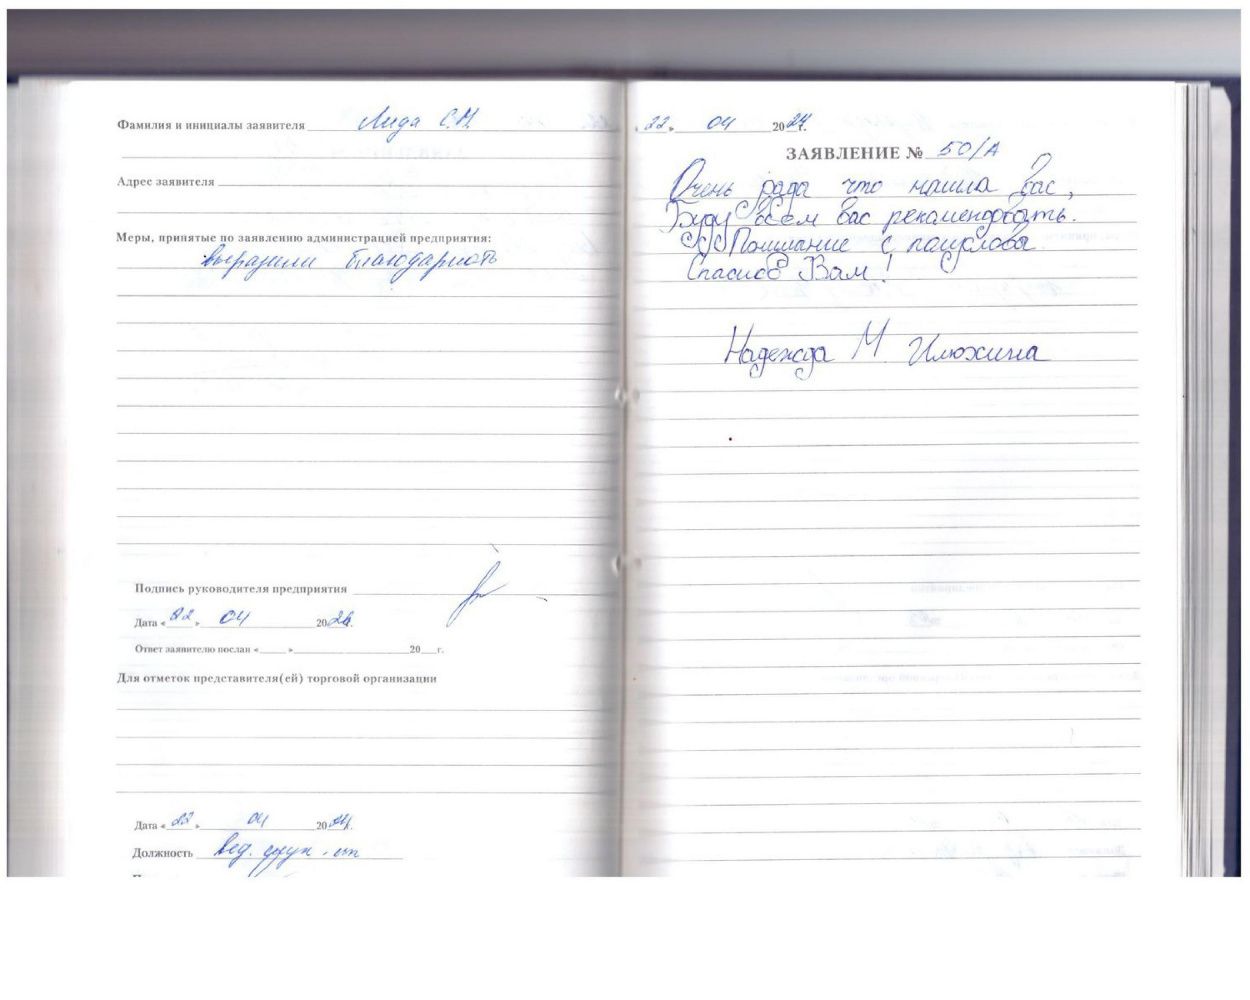 Фамилия и инициалы заявителя Лида С.М.
Адрес заявителя
Меры, принятые по заявлению администрацией предприятия:
выразили благодарность
Подпись руководителя предприятия
Дата « 22 » 04 2024.
Ответ заявителю послан « » 20 г.
Для отметок представителя(ей) торговой организации
Дата « 22 » 04 2024.
Должность вед.
« 22 » 04 2024г.
ЗАЯВЛЕНИЕ № 50/А
Очень рада что нашла вас,
Буду всем вас рекамендовать.
Понимание с полуслова.
Спасибо Вам!
Надежда М Илюхина